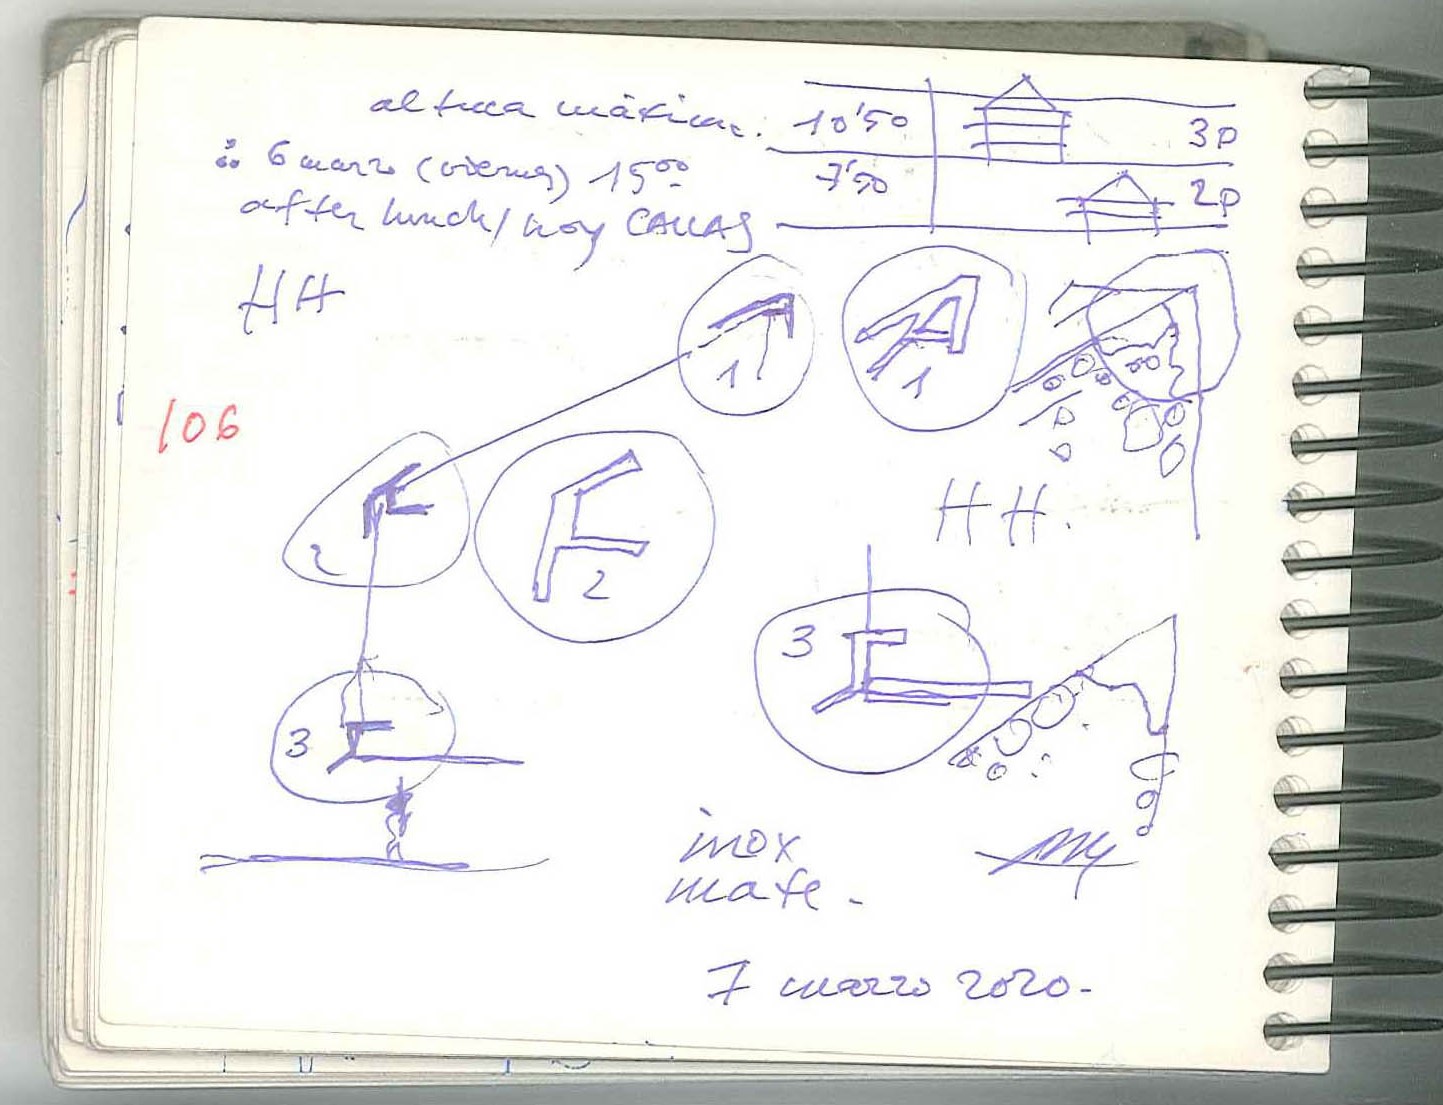 altura máxima. 10'50 3p
∴ 6 marzo (viernes) 15⁰⁰
7'50 2p
after lunch / hoy CALLAS
HH
1
1
106
2
2
HH.
3
3
inox
mate.
7 marzo 2020-